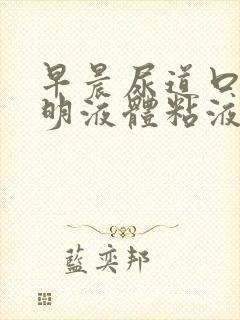 早晨尿道口
明液體粘液
藍奕邦